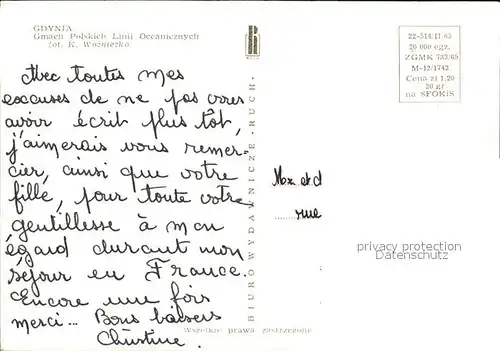 GDYNIA
Gmach Polskich Linii Oceanicznych
fot. K. Woźniczko
Avec toutes mes
excuses de ne pas vous
avoir écrit plus tôt,
j'aimerais vous remer-
cier, ainsi que votre
fille, pour toute votre
gentillesse à mon
égard durant mon
séjour en France.
Encore une fois
merci... Bons baisers
Christine.
Wszelkie prawa zastrzeżone
BIURO WYDAWNICZE „RUCH”
22-514/II/65
20 000 egz.
ZGMK 733/65
M-12/1742
Cena zł 1,20
20 gr
na SFORiS
Mr. et d
rue
privacy protection
Datenschutz